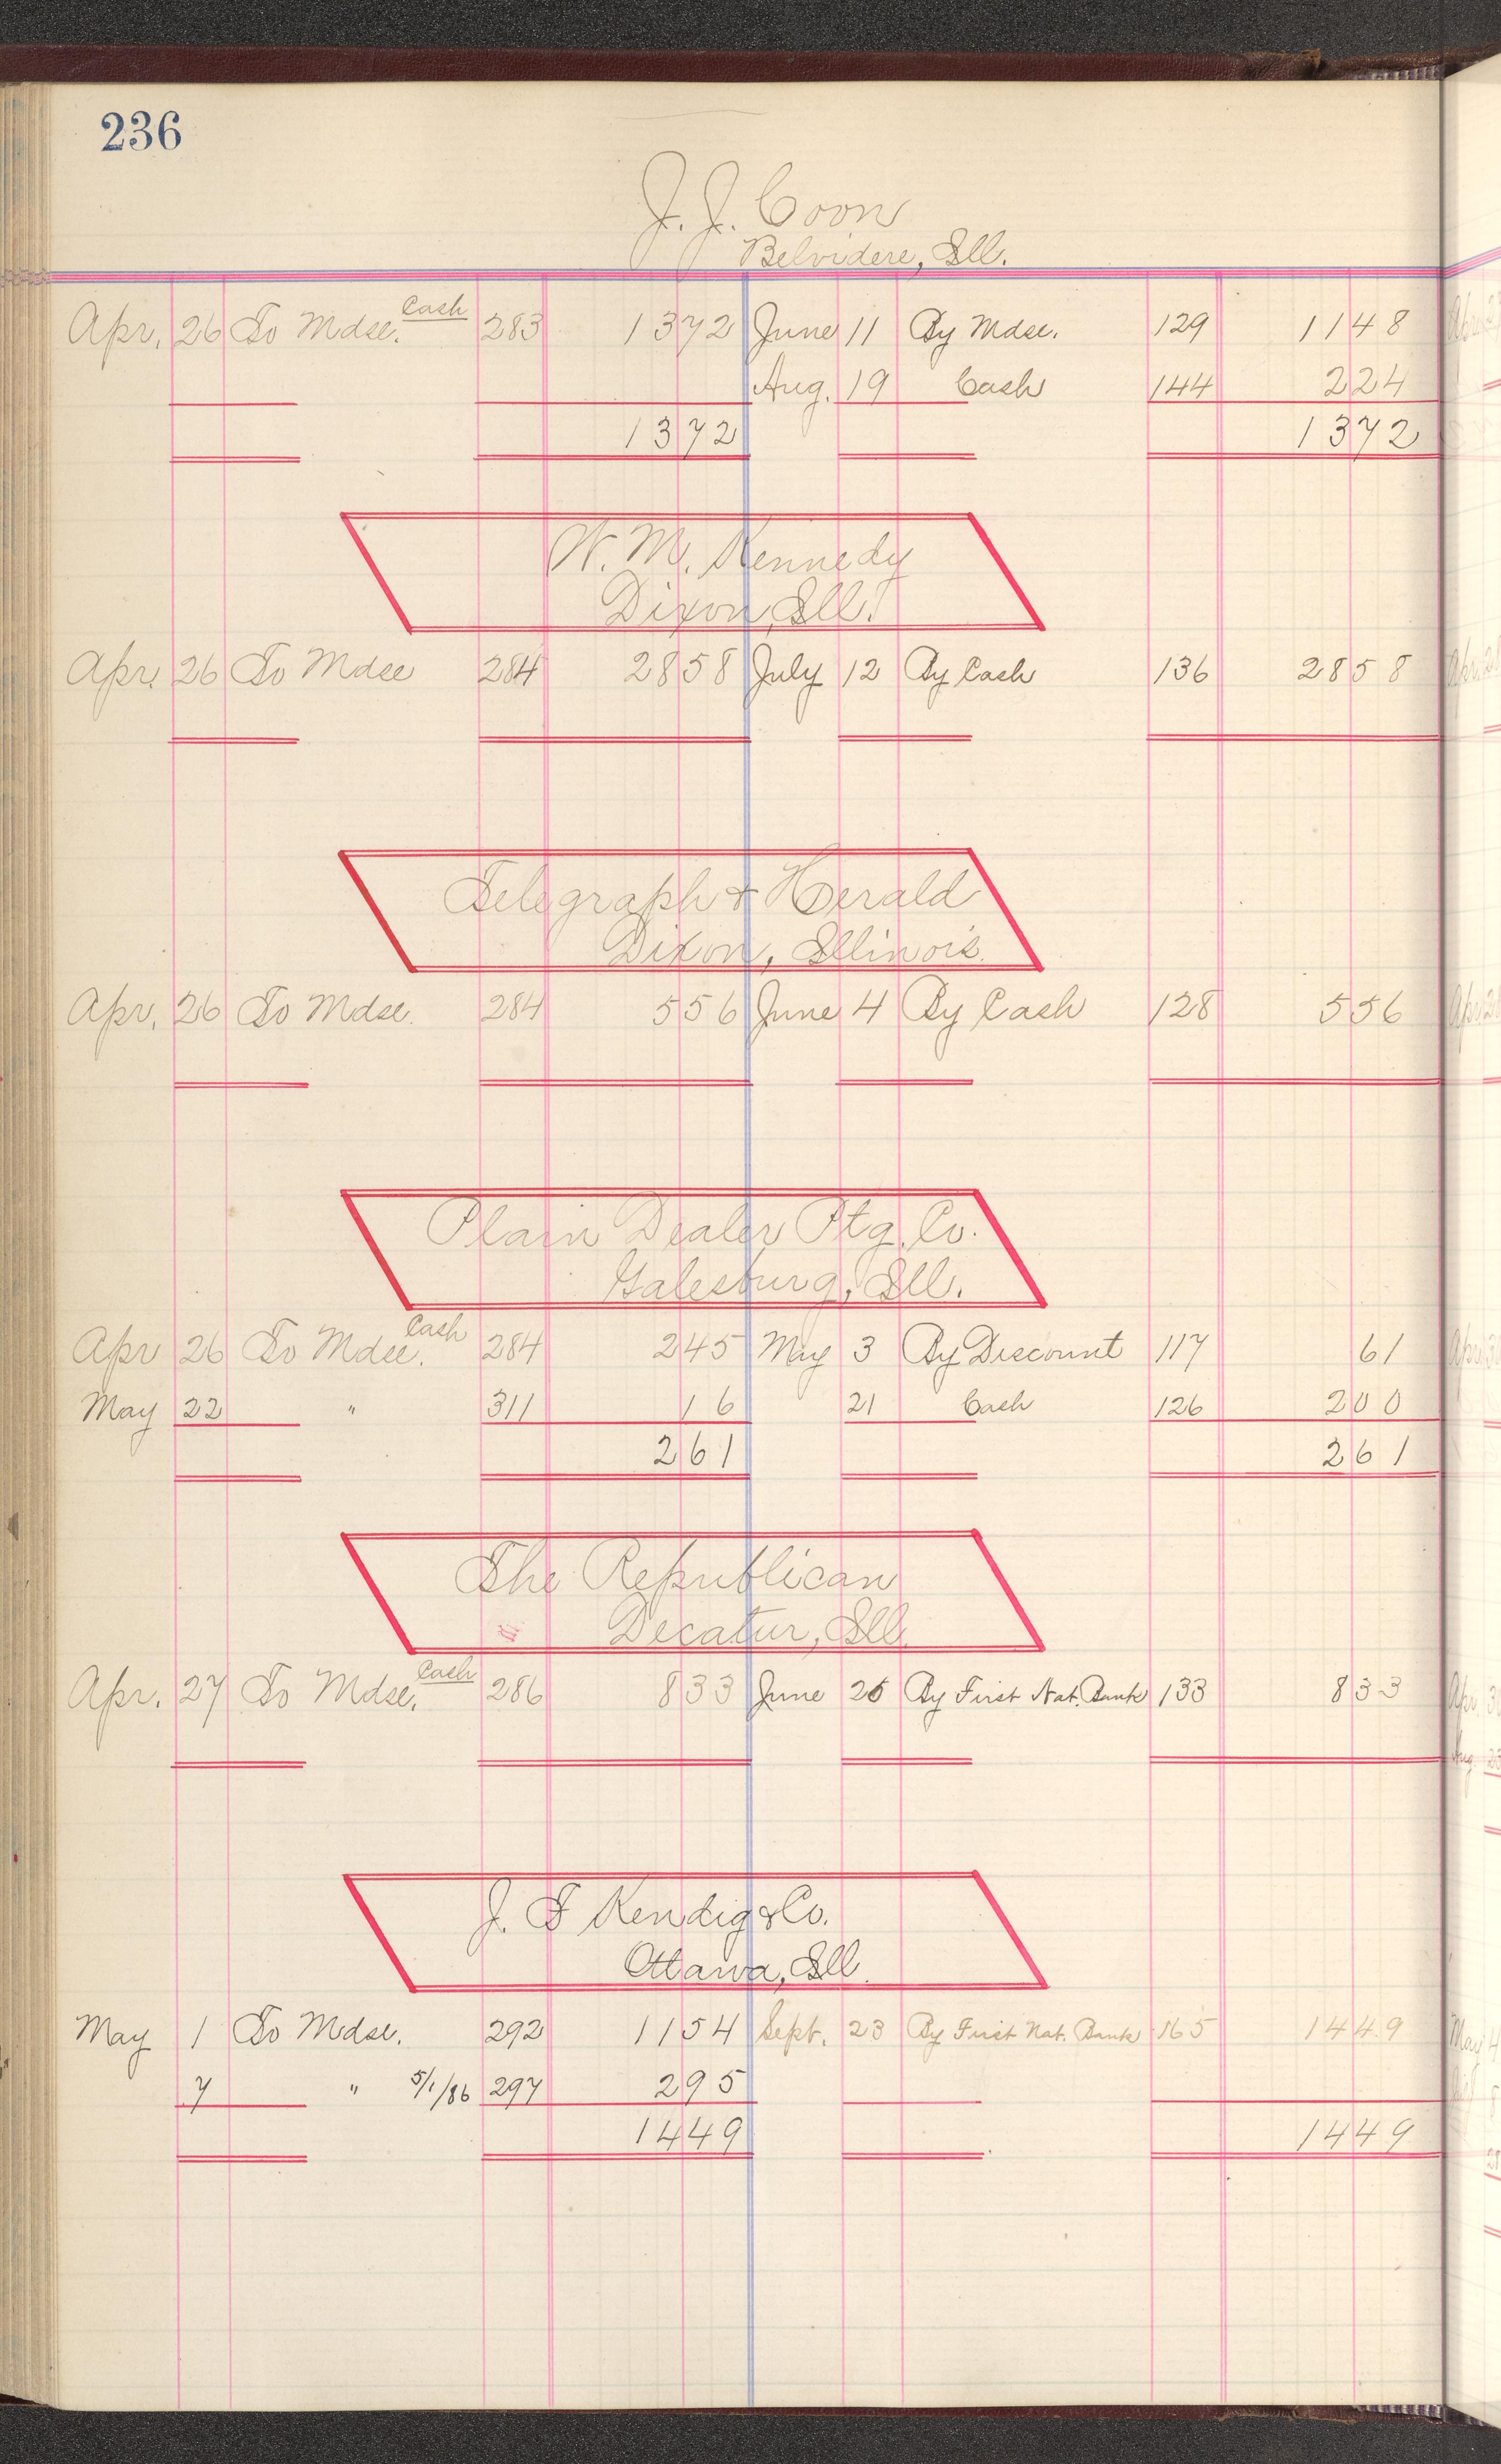 236
J. J. Coon
Belvidere, Ill.
Apr. 26 To Mdse. Cash 283 13 72 June 11 By Mdse. 129 11 48
Aug. 19 Cash 144 2 24
13 72 13 72
W. M. Kennedy
Dixon, Ill.
Apr. 26 To Mdse 284 28 58 July 12 By Cash 136 28 58
Telegraph & Herald
Dixon, Illinois.
Apr. 26 To Mdse. 284 5 56 June 4 By Cash 128 5 56
Plain Dealer Ptg. Co.
Galesburg, Ill.
Apr 26 To Mdse. Cash 284 2 45 May 3 By Discount 117 61
May 22 " 311 16 21 Cash 126 2 00
2 61 2 61
The Republican
Decatur, Ill.
Apr. 27 To Mdse. Cash 286 8 33 June 26 By First Nat. Bank 133 8 33
J. F Kendig & Co.
Ottawa, Ill.
May 1 To Mdse. 292 11 54 Sept. 23 By First Nat. Bank 165 14 49
7 " 5/1/86 297 2 95
14 49 14 49